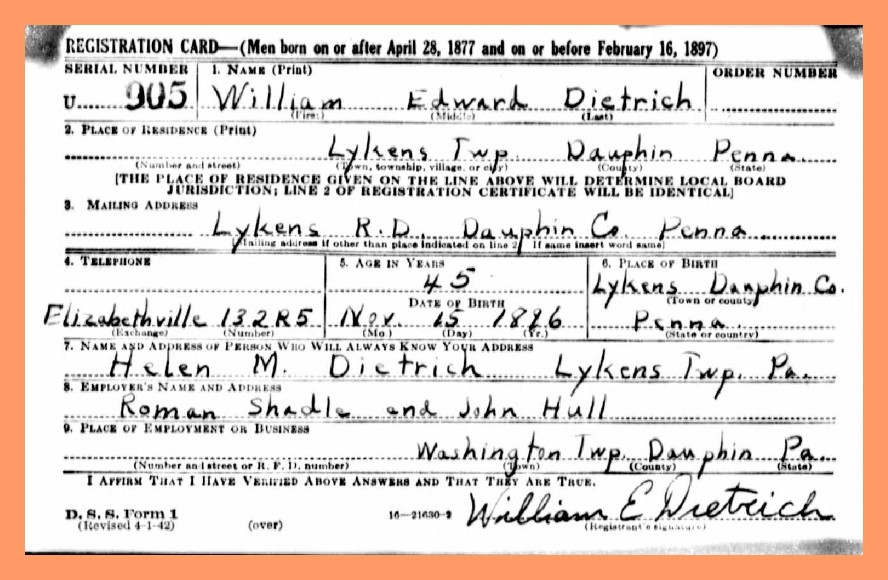 REGISTRATION CARD—(Men born on or after April 28, 1877 and on or before February 16, 1897)
SERIAL NUMBER 1. NAME (Print) ORDER NUMBER
U 905 William Edward Dietrich
(First) (Middle) (Last)
2. PLACE OF RESIDENCE (Print)
Lykens Twp. Dauphin Penna.
(Number and street) (Town, township, village, or city) (County) (State)
[THE PLACE OF RESIDENCE GIVEN ON THE LINE ABOVE WILL DETERMINE LOCAL BOARD
JURISDICTION; LINE 2 OF REGISTRATION CERTIFICATE WILL BE IDENTICAL]
3. MAILING ADDRESS
Lykens R.D. Dauphin Co Penna
[Mailing address if other than place indicated on line 2. If same insert word same]
4. TELEPHONE 5. AGE IN YEARS 6. PLACE OF BIRTH
45 Lykens Dauphin Co.
DATE OF BIRTH (Town or county)
Elizabethville 132R5 Nov. 15 Penna.
(Exchange) (Number) (Mo.) (Day) (Yr.) (State or country)
7. NAME AND ADDRESS OF PERSON WHO WILL ALWAYS KNOW YOUR ADDRESS
Helen M. Dietrich Lykens Twp. Pa.
8. EMPLOYER'S NAME AND ADDRESS
Roman Shadle and John Hull
9. PLACE OF EMPLOYMENT OR BUSINESS
Washington Twp. Dauphin Pa.
(Number and street or R. F. D. number) (Town) (County) (State)
I AFFIRM THAT I HAVE VERIFIED ABOVE ANSWERS AND THAT THEY ARE TRUE.
D. S. S. Form 1
(Revised 4-1-42) (over) 16—21630-2 William E Dietrich
(Registrant's signature)